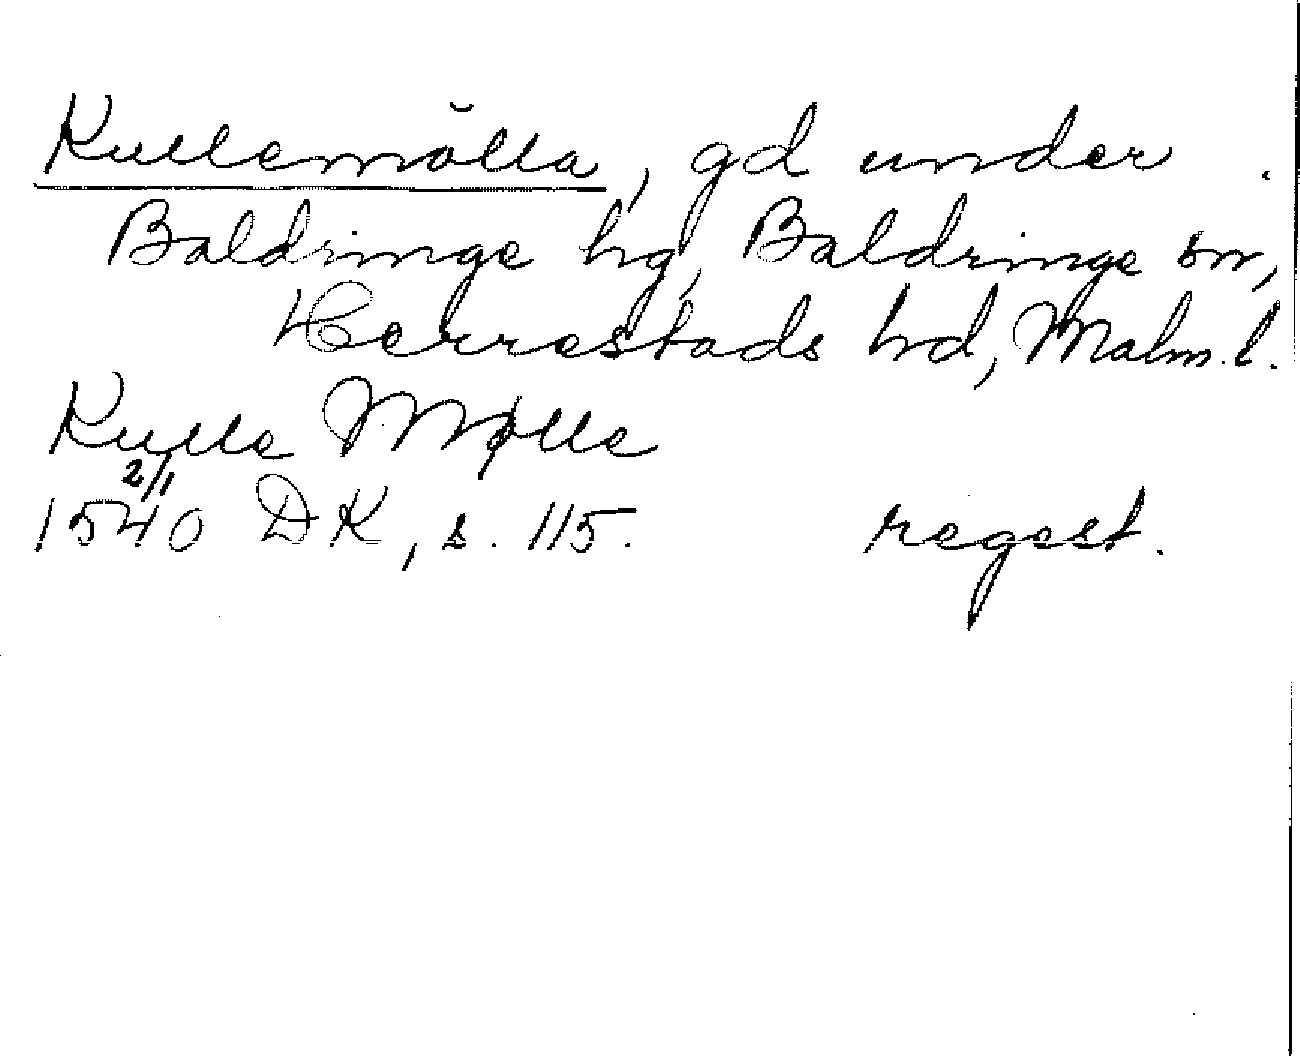 Kullemölla, gd under
Baldringe hg, Baldringe sn,
Herrestads hd, Malm. l.
Kulle Mølle
2/1
1540 DK, s. 115. regest.